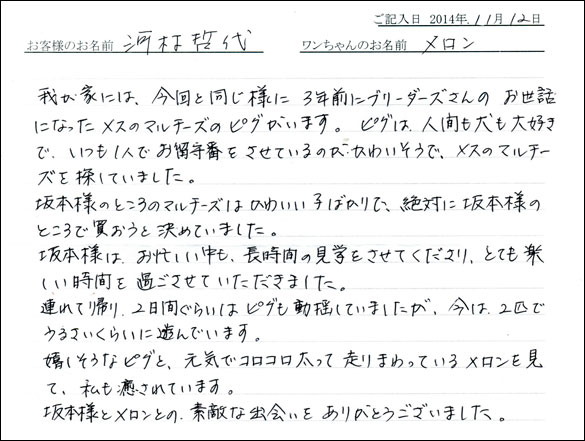 ご記入日 2014年 11月 12日
お客様のお名前 河村哲代 ワンちゃんのお名前 メロン
我が家には、今回と同じ様に 3年前にブリーダーズさんの お世話
になったメスのマルチーズのピグがいます。 ピグは、人間も犬も大好き
で、いつも1人でお留守番をさせているのがかわいそうで、メスのマルチー
ズを探していました。
坂本様のところのマルチーズはかわいい子ばかりで、絶対に坂本様の
ところで買おうと決めていました。
坂本様は、お忙しい中も、長時間の見学をさせてくださり、とても楽
しい時間を過ごさせていただきました。
連れて帰り、2日間ぐらいはピグも動揺していましたが、今は、2匹で
うるさいくらいに遊んでいます。
嬉しそうなピグと、元気でコロコロ太って走りまわっているメロンを見
て、私も癒されています。
坂本様とメロンとの、素敵な出会いを ありがとうございました。